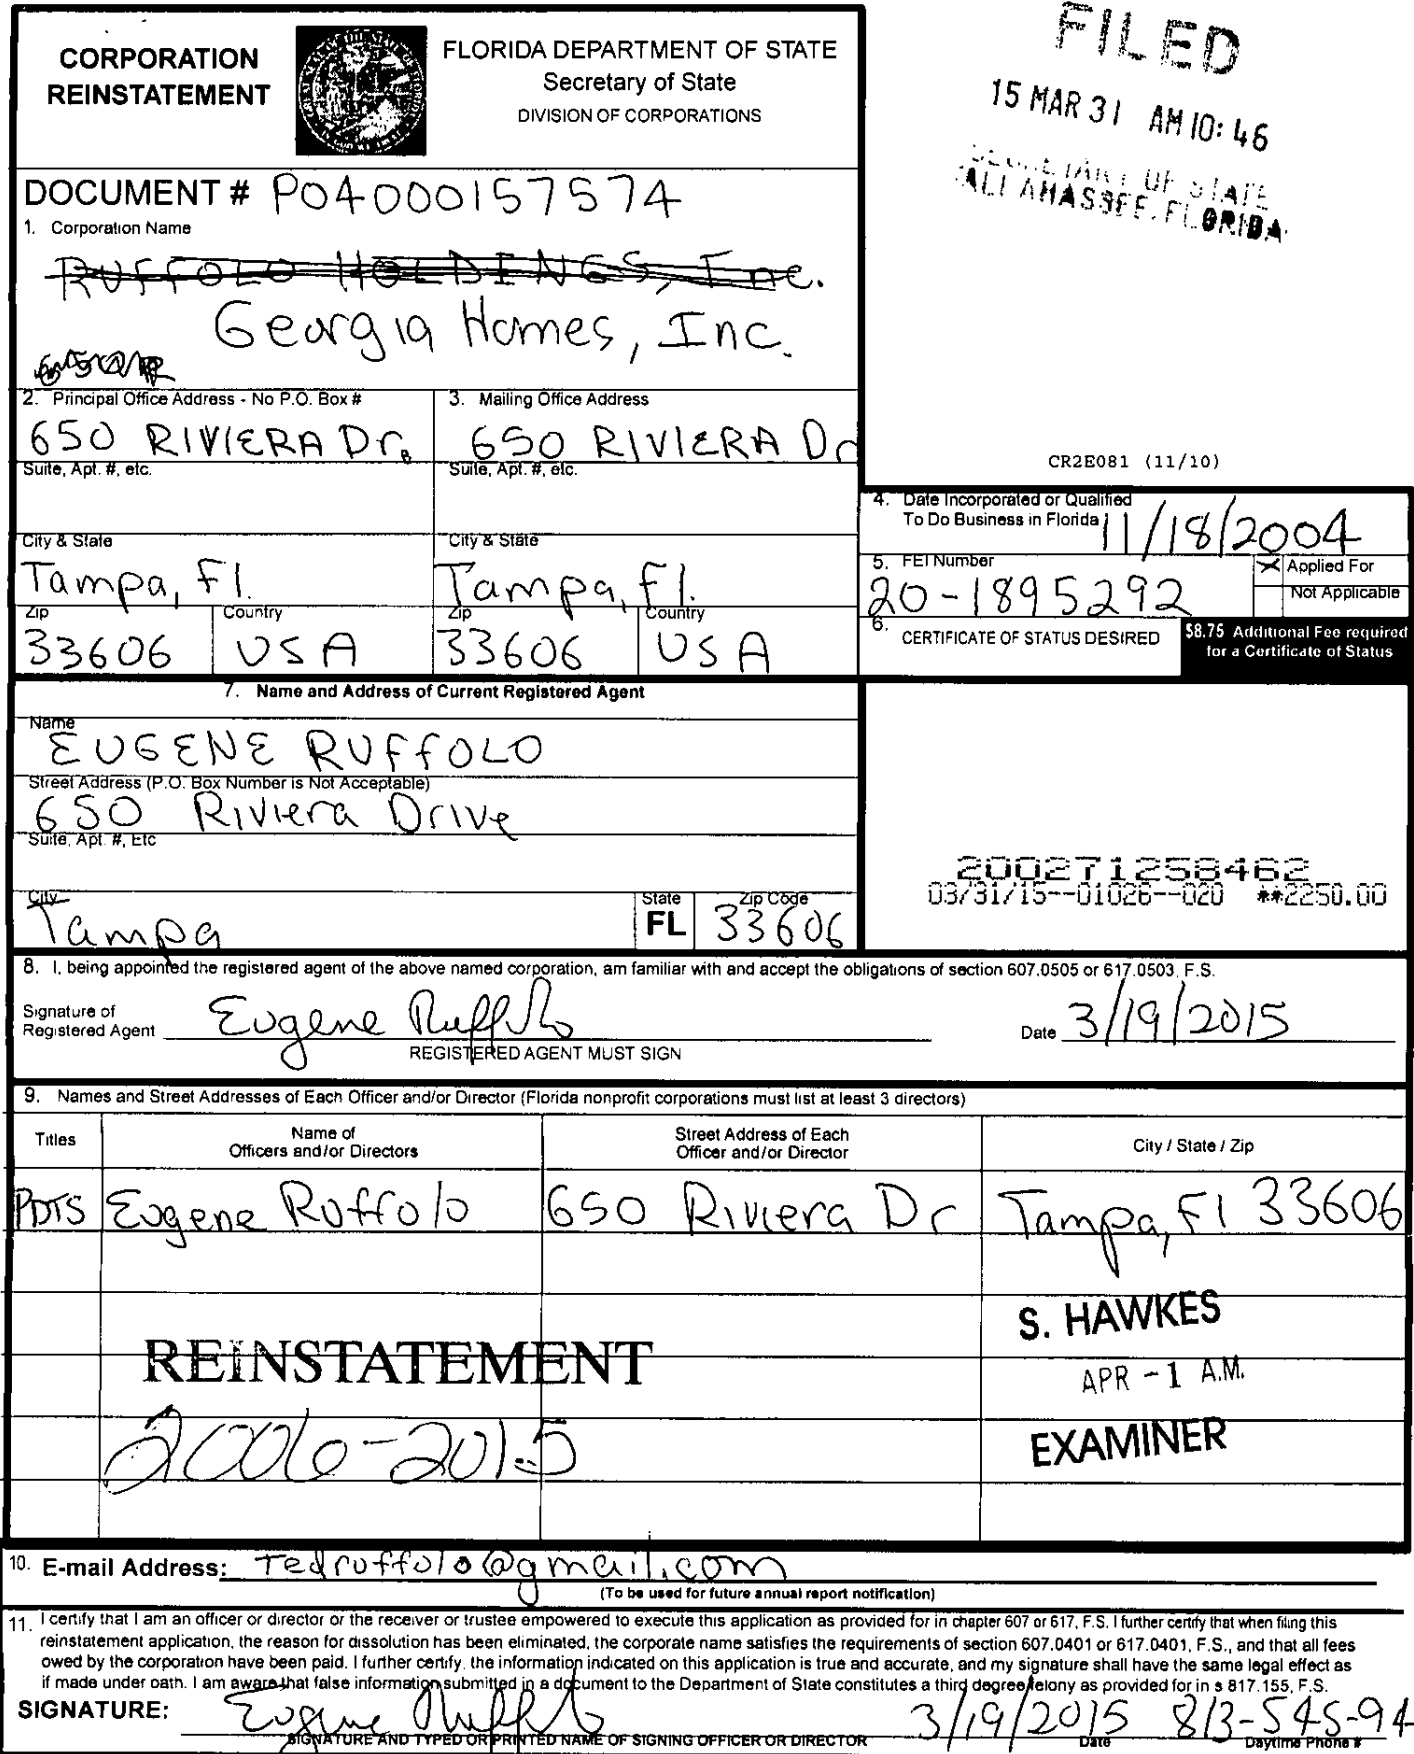 CORPORATION
REINSTATEMENT
FLORIDA DEPARTMENT OF STATE
Secretary of State
DIVISION OF CORPORATIONS
FILED
15 MAR 31 AM 10:46
SECRETARY OF STATE
TALLAHASSEE, FLORIDA
DOCUMENT # P04000157574
1. Corporation Name
RUFFOLO HOLDINGS, Inc.
Georgia Homes, Inc.
2. Principal Office Address - No P.O. Box #
3. Mailing Office Address
650 RIVIERA Dr.
650 RIVIERA Dr
Suite, Apt. #, etc.
Suite, Apt. #, etc.
CR2E081 (11/10)
City & State
City & State
Tampa, Fl.
Tampa, Fl.
Zip
Country
Zip
Country
33606
USA
33606
USA
4. Date Incorporated or Qualified
To Do Business in Florida 11/18/2004
5. FEI Number
20-1895292
Applied For
Not Applicable
6. CERTIFICATE OF STATUS DESIRED
$8.75 Additional Fee required
for a Certificate of Status
7. Name and Address of Current Registered Agent
Name
EUGENE RUFFOLO
Street Address (P.O. Box Number is Not Acceptable)
650 Riviera Drive
Suite, Apt. #, Etc
City
State
Zip Code
Tampa
FL
33606
200271258462
03/31/15--01026--020 **2250.00
8. I, being appointed the registered agent of the above named corporation, am familiar with and accept the obligations of section 607.0505 or 617.0503, F.S.
Signature of
Registered Agent Eugene Ruffolo
Date 3/19/2015
REGISTERED AGENT MUST SIGN
9. Names and Street Addresses of Each Officer and/or Director (Florida nonprofit corporations must list at least 3 directors)
Titles
Name of
Officers and/or Directors
Street Address of Each
Officer and/or Director
City / State / Zip
PDTS Eugene Ruffolo 650 Riviera Dr Tampa, Fl 33606
S. HAWKES
REINSTATEMENT
APR - 1 A.M.
2006-2015
EXAMINER
10. E-mail Address: Tedruffolo@gmail.com
(To be used for future annual report notification)
11. I certify that I am an officer or director or the receiver or trustee empowered to execute this application as provided for in chapter 607 or 617, F.S. I further certify that when filing this
reinstatement application, the reason for dissolution has been eliminated, the corporate name satisfies the requirements of section 607.0401 or 617.0401, F.S., and that all fees
owed by the corporation have been paid. I further certify, the information indicated on this application is true and accurate, and my signature shall have the same legal effect as
if made under oath. I am aware that false information submitted in a document to the Department of State constitutes a third degree felony as provided for in s 817.155, F.S.
SIGNATURE: Eugene Ruffolo 3/19/2015 813-545-94
SIGNATURE AND TYPED OR PRINTED NAME OF SIGNING OFFICER OR DIRECTOR
Date
Daytime Phone #